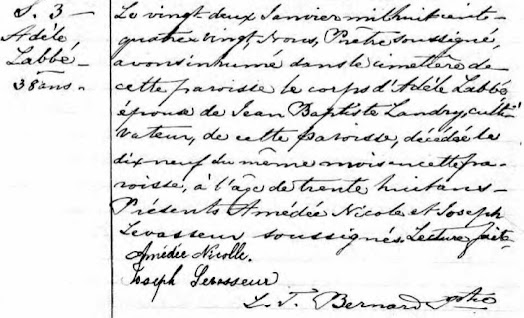 S. 3 —
Adèle
Labbé —
38 ans. —
Le vingt deux Janvier mil huit cent-
quatre vingt, Nous, Prêtre soussigné,
avons inhumé dans le cimetière de
cette paroisse le corps d'Adèle Labbé,
épouse de Jean Baptiste Landry, culti-
vateur, de cette paroisse, décédée le
dix neuf du même mois en cette pa-
roisse, à l'âge de trente huit ans —
Présents Amédée Nicole et Joseph
Levasseur soussignés. Lecture faite
Amédée Nicolle.
Joseph Levasseur
Bernard Ptre